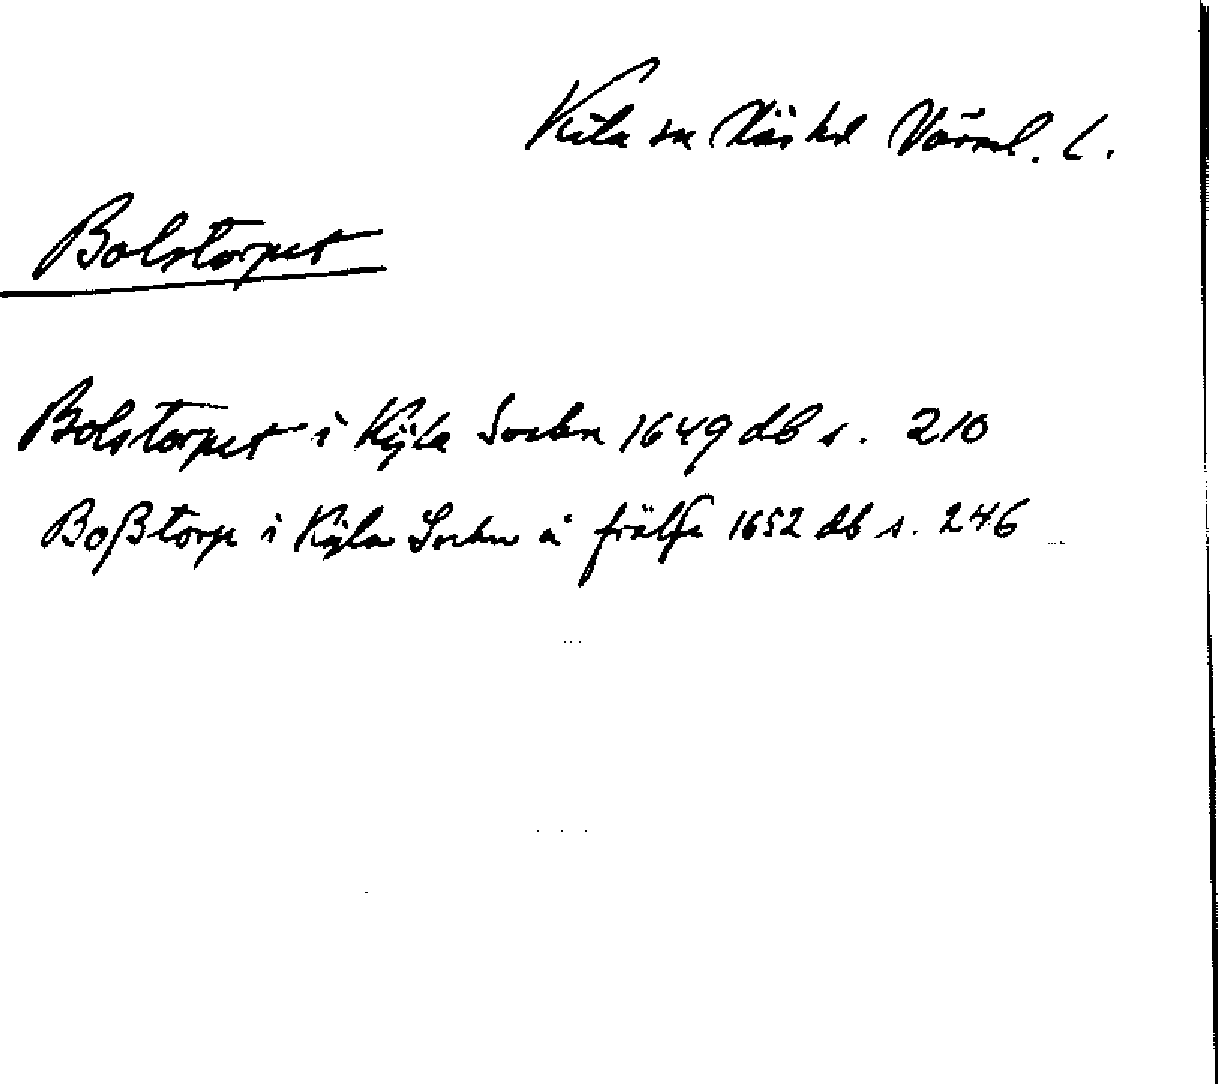 Kila sn Näs hd Värml. l.
Bolstorpet
Bolstorpet i Kÿla Sochn 1649 db s. 210
Boßtorp i Kÿla Sochn å frälse 1652 db s. 246